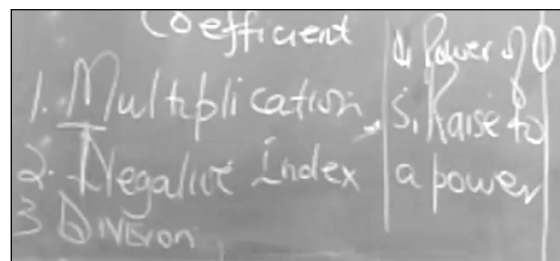 Coefficient
1. Multiplication
2. Negative Index
3 Division
4. Power of 0
5. Raise to
a power